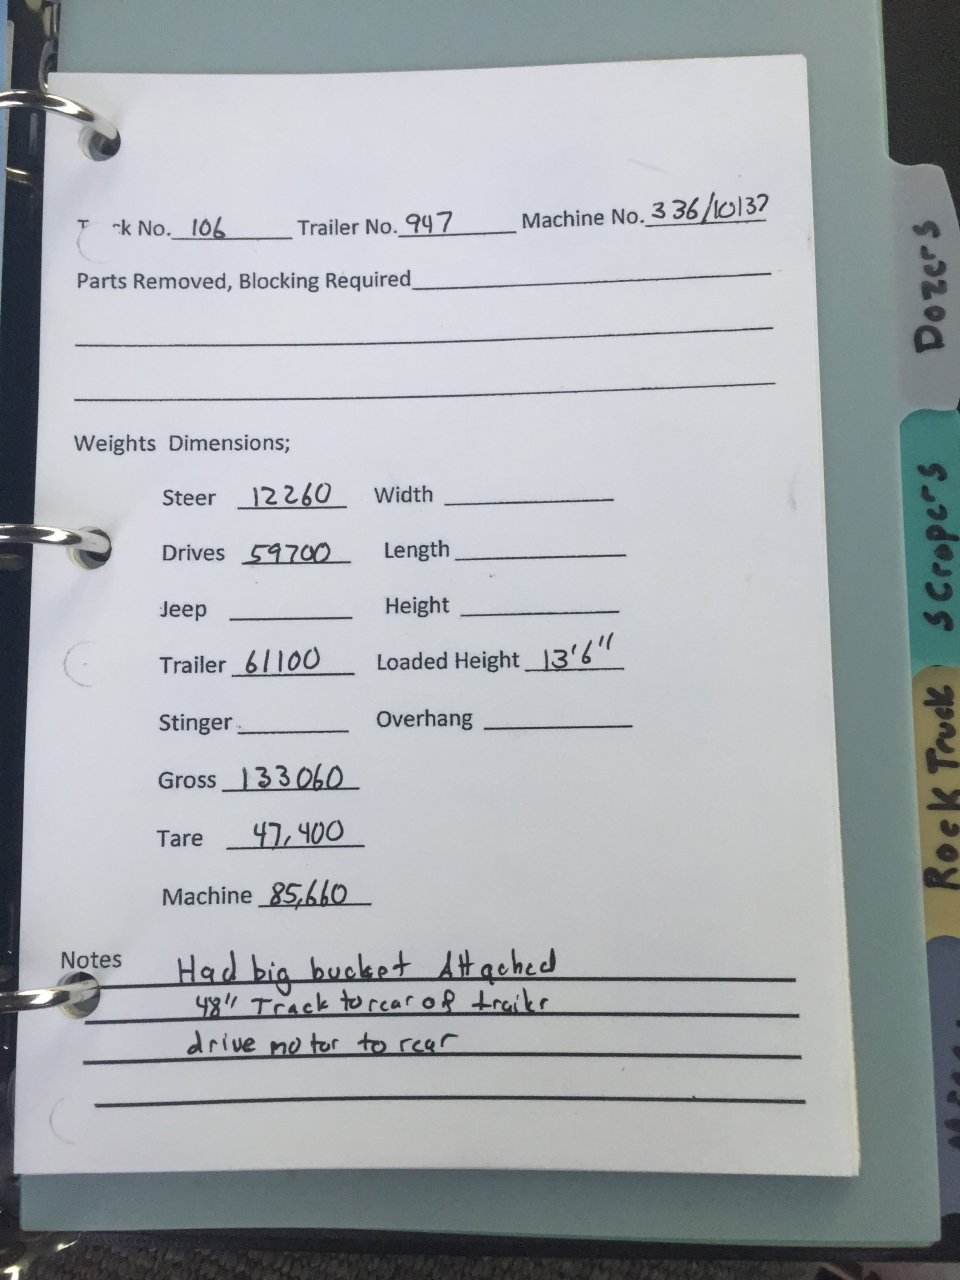 k No. 106 Trailer No. 947 Machine No. 336/10137
Parts Removed, Blocking Required
Weights Dimensions;
Steer 12260 Width
Drives 59700 Length
Jeep Height
Trailer 61100 Loaded Height 13'6"
Stinger Overhang
Gross 133060
Tare 47,400
Machine 85,660
Notes Had big bucket Attached
48" Track to rear of trailer
drive motor to rear
Dozers
Scrapers
Rock Truck